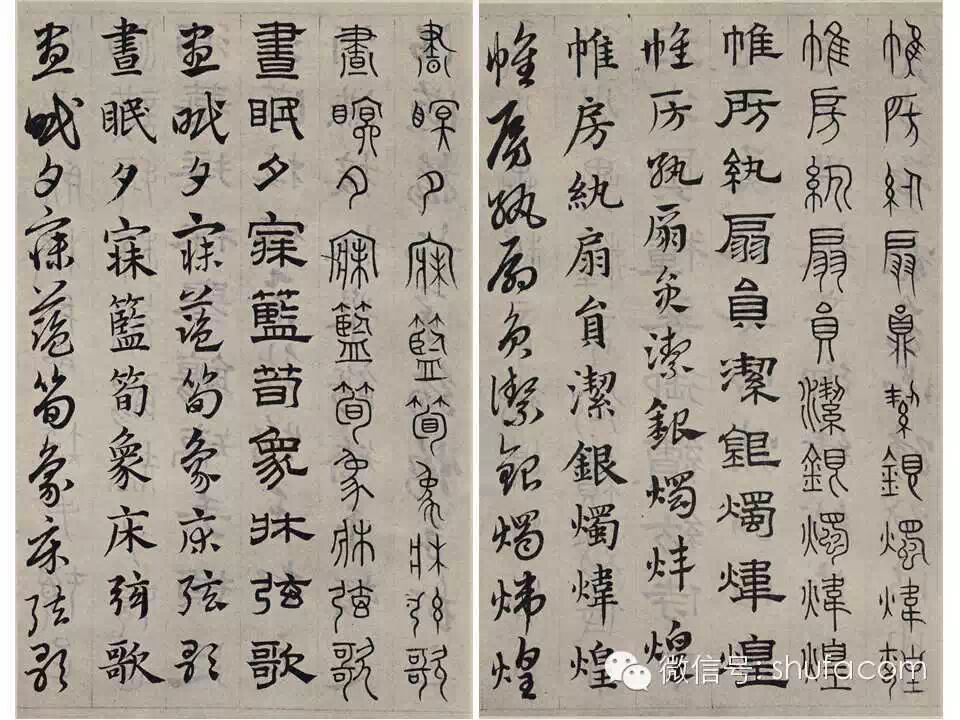 帷房紈扇員潔銀燭煒煌
帷房紈扇員潔銀燭煒煌
帷房紈扇員潔銀燭煒煌
帷房紈扇員潔銀燭煒煌
帷房紈扇員潔銀燭煒煌
帷房紈扇員潔銀燭煒煌
晝瞑夕寐籃筍象牀弦歌
晝瞑夕寐籃筍象牀弦歌
晝眠夕寐藍荀象牀弦歌
晝眠夕寐藍筍象床弦歌
晝眠夕寐籃筍象床弦歌
晝眠夕寐藍筍象床弦歌
微信号: shufacom